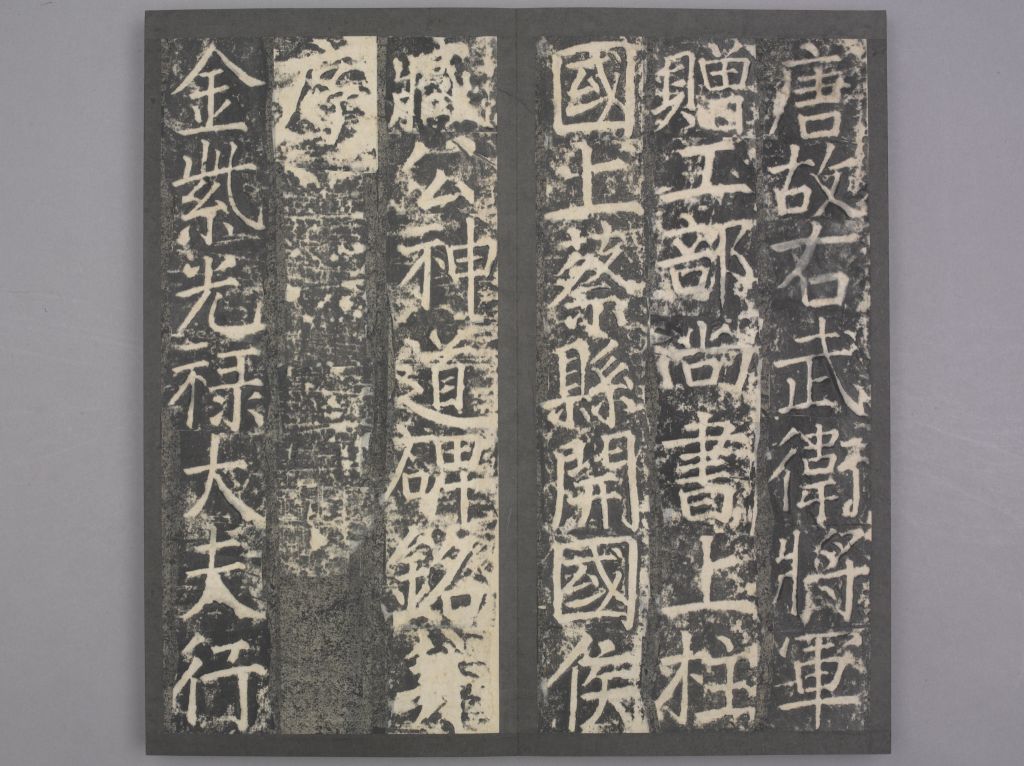 唐故右武衛將軍
贈工部尚書上柱
國上蔡縣開國侯
臧公神道碑銘并
序
金紫光禄大夫行